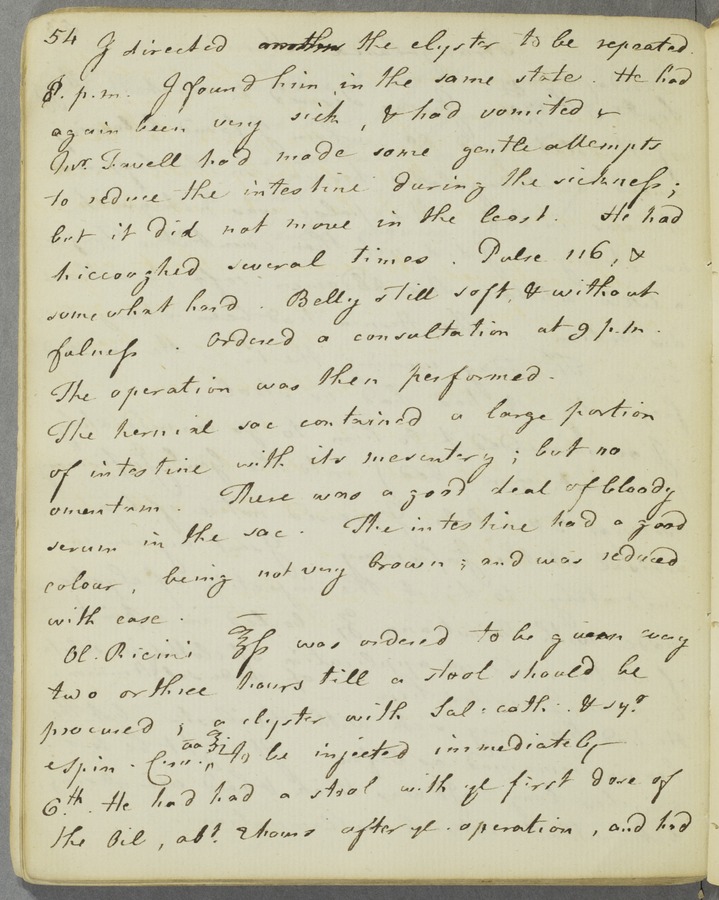 54
I directed another the clyster to be repeated.
8. p.m. I found him in the same state. He had
again been very sick, & had vomited &
Mr. had made some gentle attempts
to reduce the intestine during the sickness;
but it did not move in the least. He had
hiccoughed several times. Pulse 116, &
somewhat hard. Belly still soft, & without
fulness. Ordered a consultation at 9 p.m.
The operation was then performed.
The hernial sac contained a large portion
of intestine with its mesentery; but no
omentum. There was a good deal of bloody
serum in the sac. The intestine had a good
colour, being not very brown; and was reduced
with ease.
Ol. Ricini ℥ſs was ordered to be given every
two or three hours till a stool should be
procured; a clyster with Sal: cath: & syr.
e spin. Cerv: aa ℥i to be injected immediately
6th. He had had a stool with ye first dose of
the Oil, abt. 2 hours after ye. operation, and had